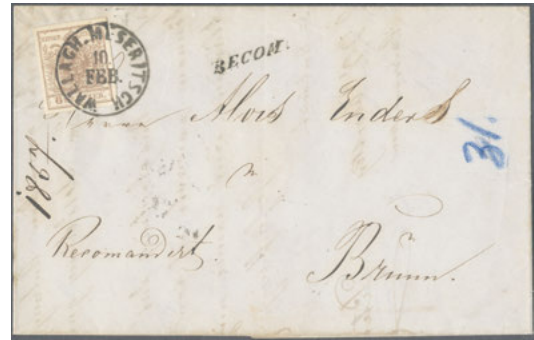 WALLACH-MESERITSCH
10
FEB.
RECOM.
Herrn Alois Enders
31.
in
Recomandirt.
Brünn.